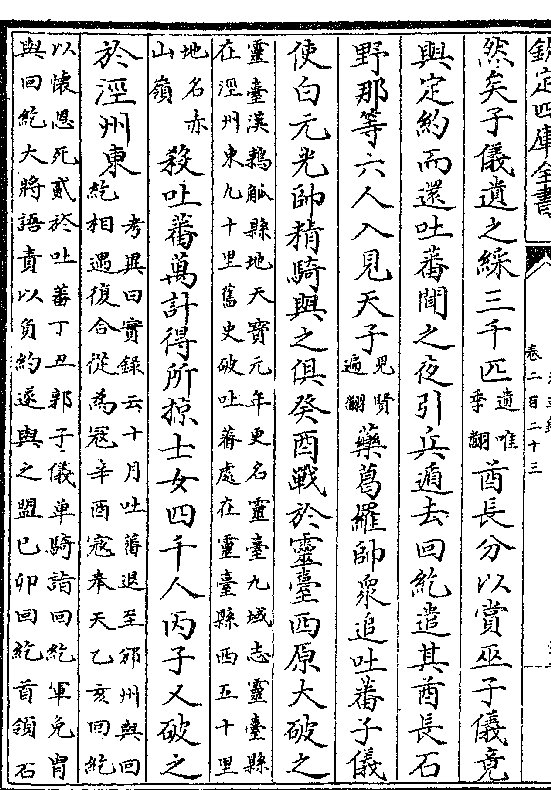 欽定四庫全書
卷二百二十三
然矣子儀遺之綵三千匹遺唯季翻酋長分以賞巫子儀竟
與定約而還吐蕃聞之夜引兵遁去回紇遣其酋長石
野那等六人入見天子見賢遍翻藥葛羅帥衆追吐蕃子儀
使白元光帥精騎與之俱癸酉戰於靈臺西原大破之
靈臺漢鶉觚縣地天寶元年更名靈臺九域志靈臺縣
在涇州東九十里舊史破吐蕃處在靈臺縣西五十里
地名赤山嶺殺吐蕃萬計得所掠士女四千人丙子又破之
於涇州東考異曰實錄云十月吐蕃退至邠州與回
紇相遇復合從為寇辛酉寇奉天乙亥回紇
以懷恩死貳於吐蕃丁丑郭子儀單騎詣回紇軍免冑
與回紇大將語責以負約遂與之盟巳卯回紇首領石